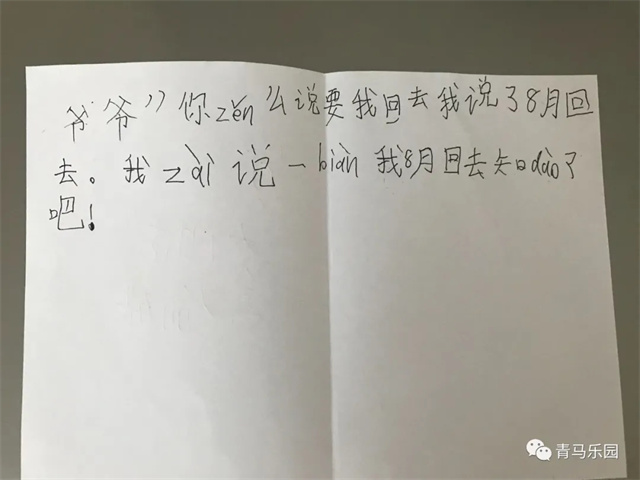 爷爷"你zěn么说要我回去我说了8月回
去。我zài说一biàn我8月回去知dào了
吧!
青马乐园